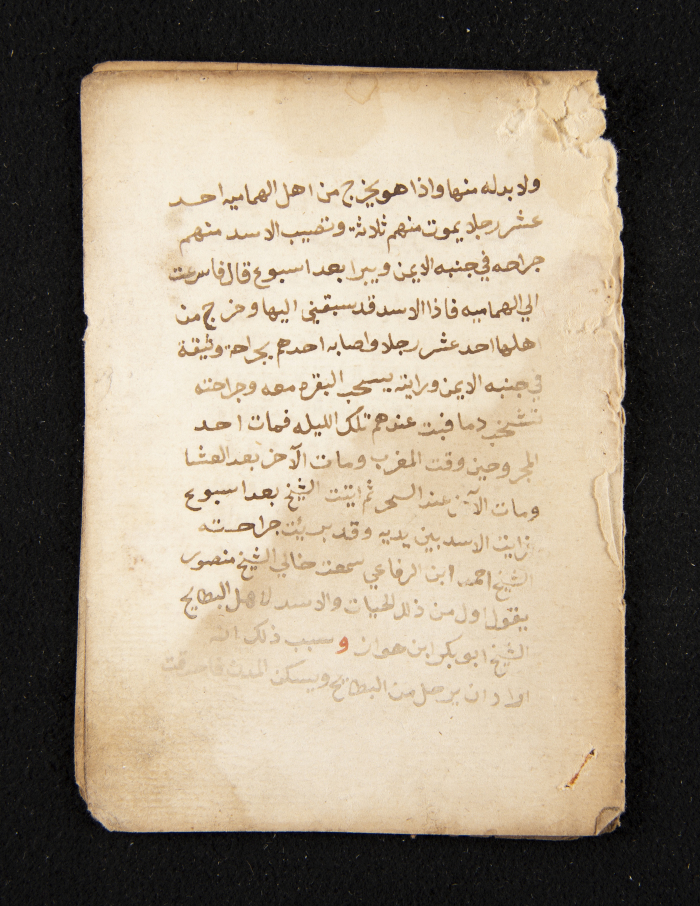 ولا بد له منها واذا هو يخرج من اهل الهماميه احد
عشر رجلا يموت منهم ثلاثة وتصيب الاسد منهم
جراحه في جنبه الايمن ويبرا بعد اسبوع قال فاسرعت
الي الهماميه فاذا الاسد قد سبقيني اليها وخرج من
اهلها احد عشر رجلا واصابه احدهم بجراحة وثيقة
في جنبه الايمن ورايته يسحب البقره معه وجراحته
تشخب دما فبت عندهم تلك الليله فمات احد
المجروحين وقت المغرب ومات الآخر بعد العشا
ومات الآخر عند السحر ثم اتيت الشيخ بعد اسبوع
فرايت الاسد بين يديه وقد برئت جراحته
الشيخ احمد ابن الرفاعي سمعت خالي الشيخ منصور
يقول اول من ذلل الحيات والاسد لاهل البطايح
الشيخ ابو بكر ابن هوان و سبب ذلك انه
اراد ان يرحل من البطايح ويسكن المدن